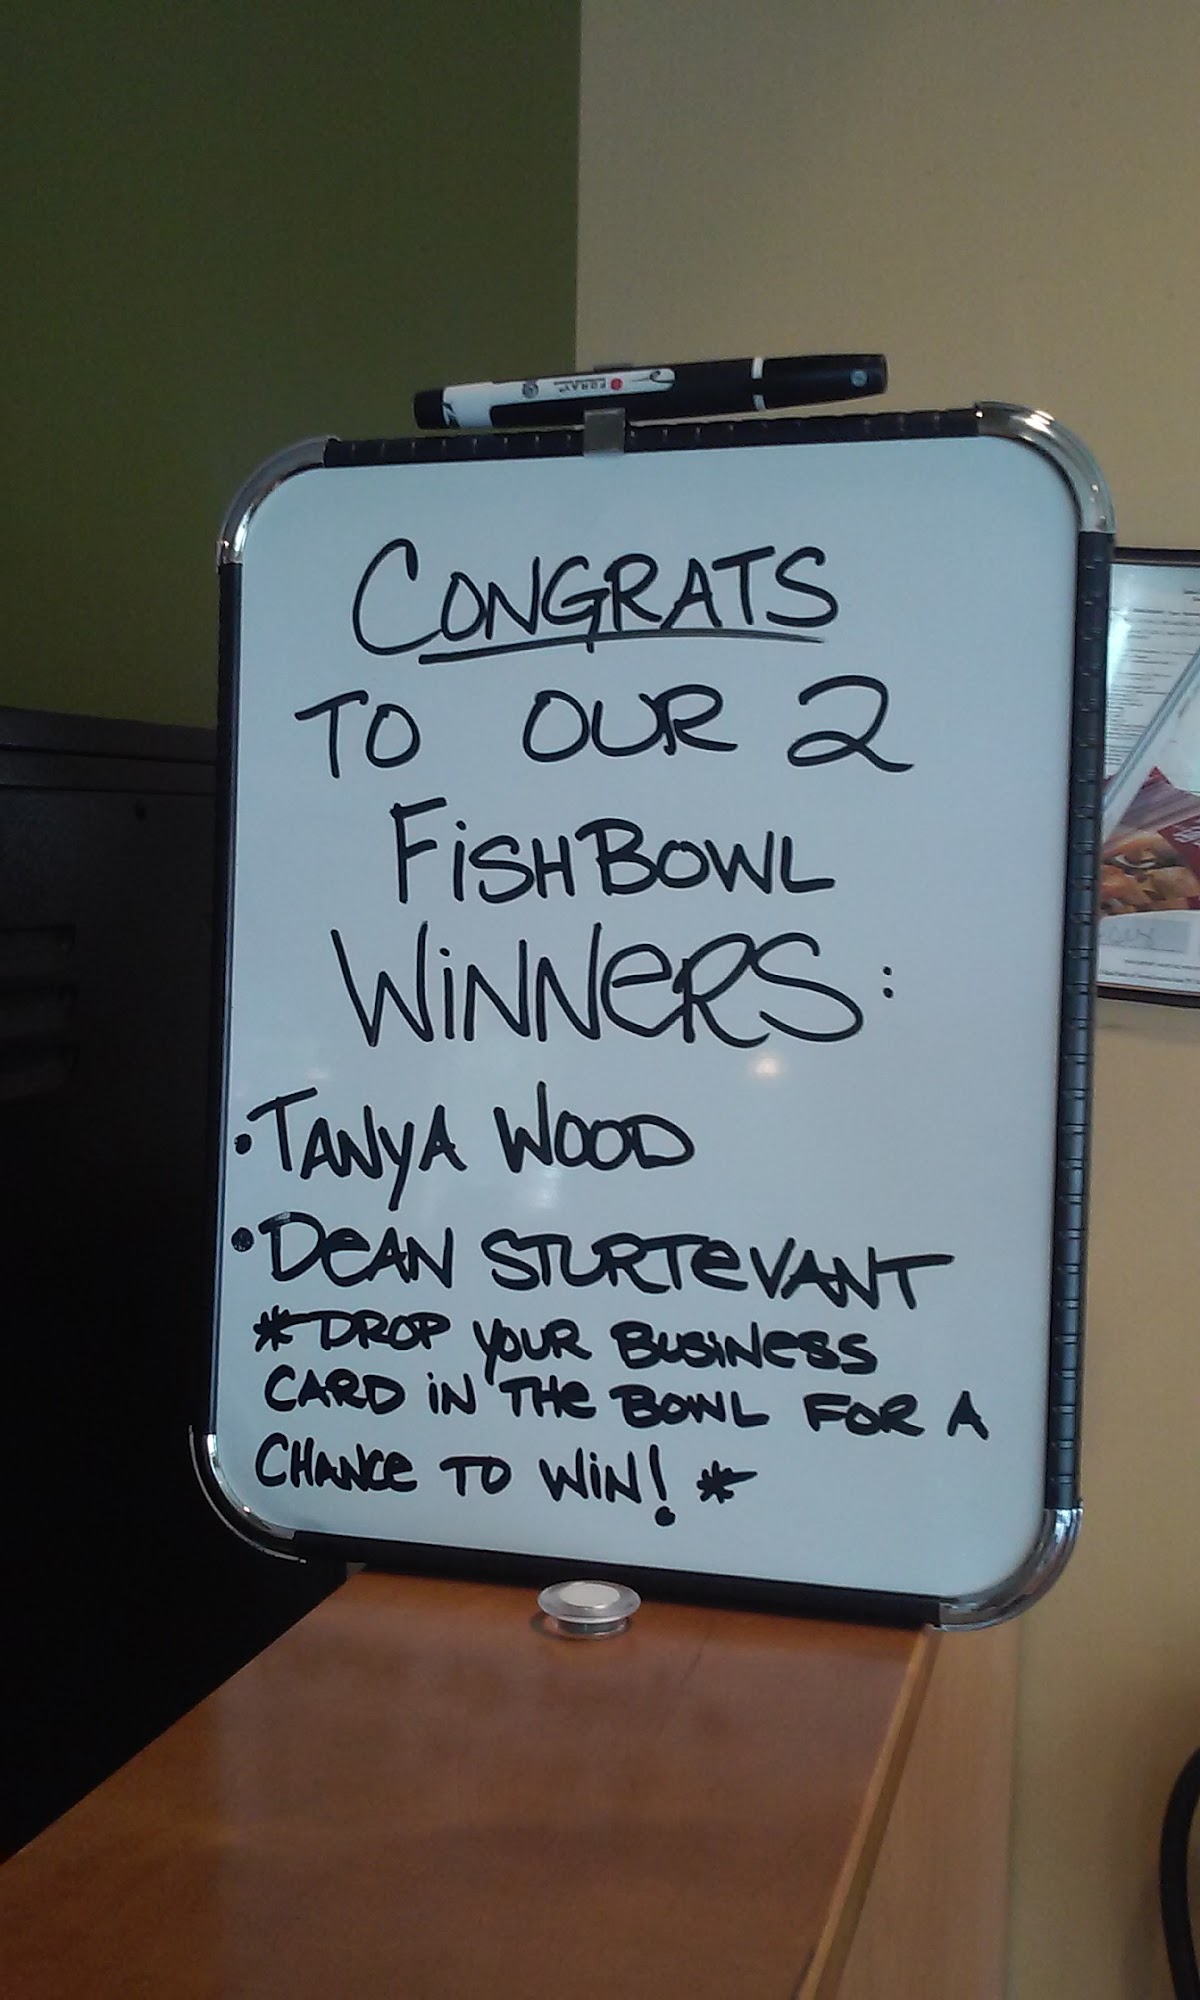 CONGRATS
TO OUR 2
FISHBOWL
WINNERS:
• TANYA WOOD
• DEAN STURTEVANT
*DROP YOUR BUSINESS
CARD IN THE BOWL FOR A
CHANCE TO WIN! *
FORAY